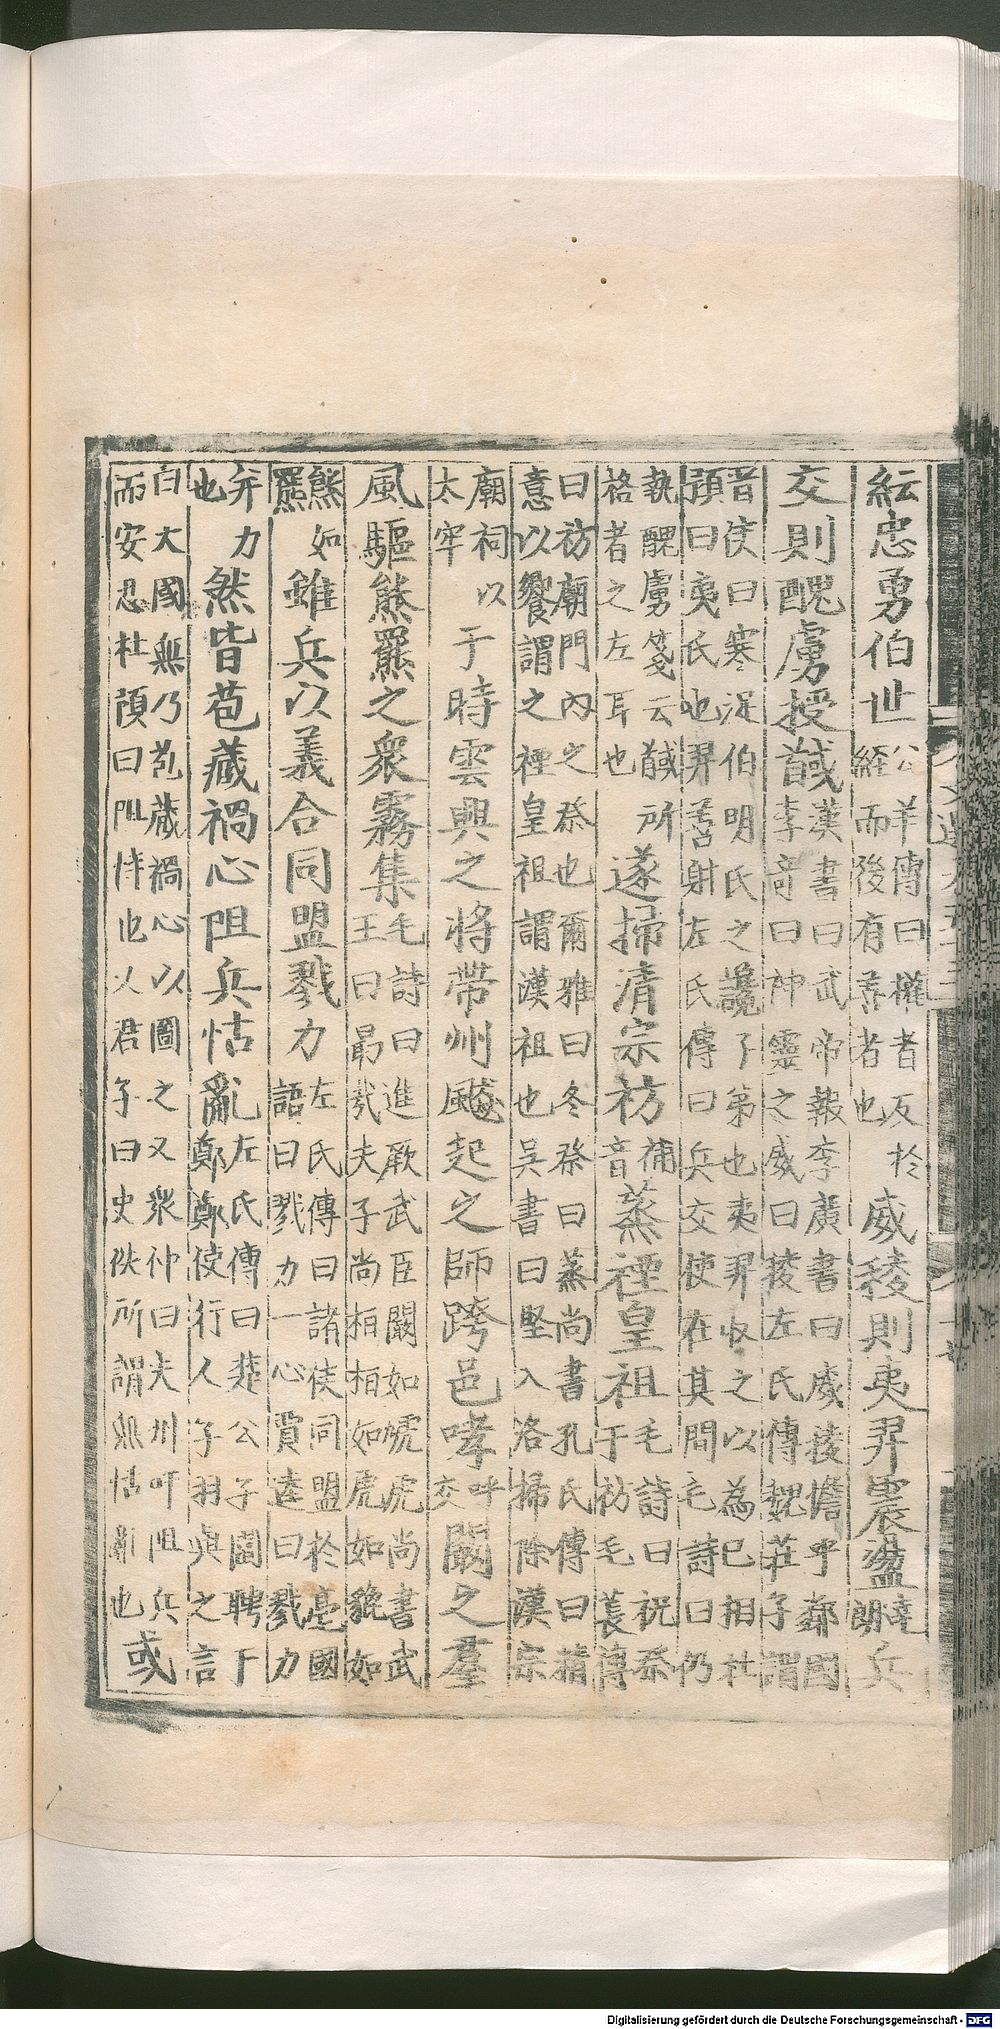 紜忠勇伯世公羊傳曰權者反於經而後有善者也威稜則夷羿震盪兵
交則醜虜授馘漢書曰武帝報李廣書曰威稜憺乎鄰國李奇曰神靈之威曰稜左氏傳魏莊子謂
晉侯曰寒浞伯明氏之讒子弟也夷羿收之以為已相杜預曰夷氏也羿善射左氏傳曰兵交使在其間毛詩曰仍
執醜虜箋云馘所格者之左耳也遂掃清宗祊補音蒸禋皇祖毛詩曰祝祭于祊毛萇傳
曰祊廟門內之祭也爾雅曰冬祭曰蒸尚書孔氏傳曰精意以饗謂之禋皇祖謂漢祖也吳書曰堅入洛掃除漢宗
廟祠以太牢于時雲興之將帶州飈起之師跨邑哮呼交闞之羣
風驅熊羆之衆霧集毛詩曰進厥武臣闞如虓虎尚書武王曰勗哉夫子尚相相如虎如貔如
熊如羆雖兵以義合同盟戮力左氏傳曰諸侯同盟於亳國語曰戮力一心賈逵曰戮力
并力也然皆苞藏禍心阻兵怙亂左氏傳曰楚公子圍聘于鄭鄭使行人子羽與之言
曰大國無乃苞藏禍心以圖之又衆仲曰夫州吁阻兵而安忍杜預曰阻恃也又君子曰史佚所謂無怙亂也或
Digitalisierung gefördert durch die Deutsche Forschungsgemeinschaft - DFG